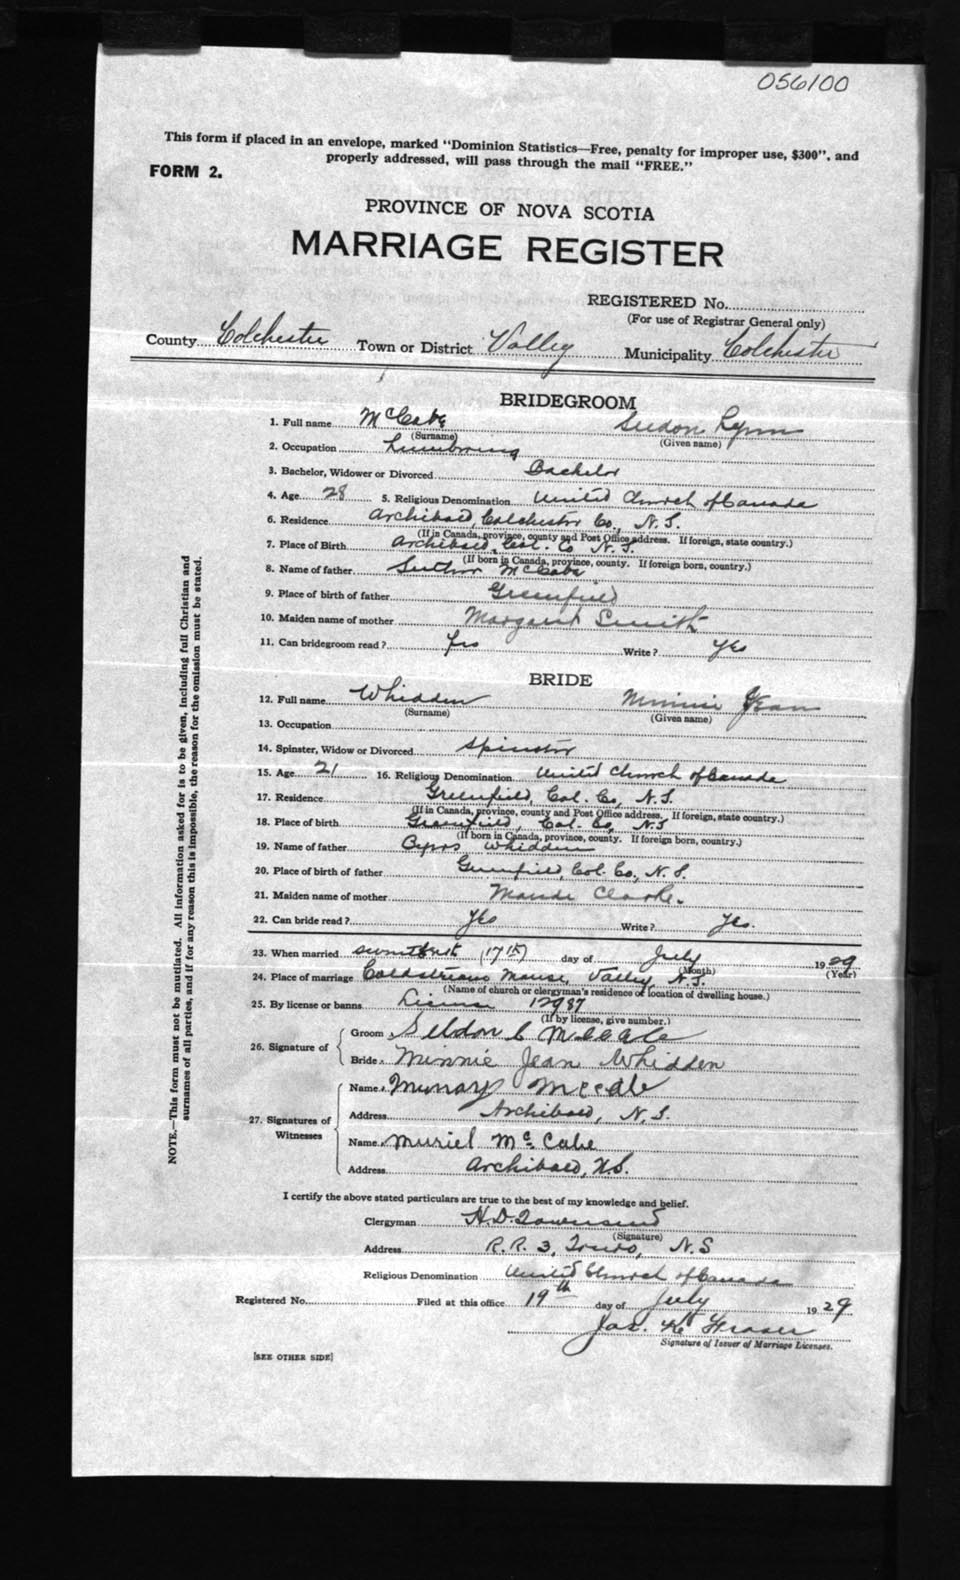 056100
This form if placed in an envelope, marked "Dominion Statistics—Free, penalty for improper use, $300", and
properly addressed, will pass through the mail "FREE."
FORM 2.
PROVINCE OF NOVA SCOTIA
MARRIAGE REGISTER
REGISTERED No.
(For use of Registrar General only)
County Colchester Town or District Valley Municipality Colchester
BRIDEGROOM
1. Full name McCabe
(Surname) (Given name)
2. Occupation Lumbering
3. Bachelor, Widower or Divorced Bachelor
4. Age 28 5. Religious Denomination United Church of Canada
6. Residence Archibald, Colchester Co., N.S.
(If in Canada, province, county and Post Office address. If foreign, state country.)
7. Place of Birth Archibald, Col. Co N.S.
(If born in Canada, province, county. If foreign born, country.)
8. Name of father McCabe
9. Place of birth of father Greenfield
10. Maiden name of mother Margaret Smith
11. Can bridegroom read? Yes Write? Yes
BRIDE
12. Full name Whidden Minnie Jean
(Surname) (Given name)
13. Occupation
14. Spinster, Widow or Divorced Spinster
15. Age 21 16. Religious Denomination United Church of Canada
17. Residence Greenfield, Col. Co, N.S.
(If in Canada, province, county and Post Office address. If foreign, state country.)
18. Place of birth Greenfield, Col. Co, N.S
(If born in Canada, province, county. If foreign born, country.)
19. Name of father Whidden
20. Place of birth of father Greenfield, Col. Co., N.S.
21. Maiden name of mother Maude Clarke.
22. Can bride read? Yes Write? Yes.
23. When married (17th) day of July 1929
(Month) (Year)
24. Place of marriage Manse, Valley, N.S.
(Name of church or clergyman's residence or location of dwelling house.)
25. By license or banns License 12987
(If by license, give number.)
26. Signature of Groom Seldon L McCabe
Bride Minnie Jean Whidden
27. Signatures of Witnesses Name Murray McCabe
Address Archibald, N.S.
Name Muriel McCabe
Address Archibald, N.S.
I certify the above stated particulars are true to the best of my knowledge and belief.
Clergyman H.D. Townsend
(Signature)
Address R.R. 3, Truro, N.S
Religious Denomination United Church of Canada
Registered No. Filed at this office 19th day of July 1929
Jas. Fraser
Signature of Issuer of Marriage Licenses.
[SEE OTHER SIDE]
NOTE.—This form must not be mutilated. All information asked for is to be given, including full Christian and
surnames of all parties, and if for any reason this is impossible, the reason for the omission must be stated.